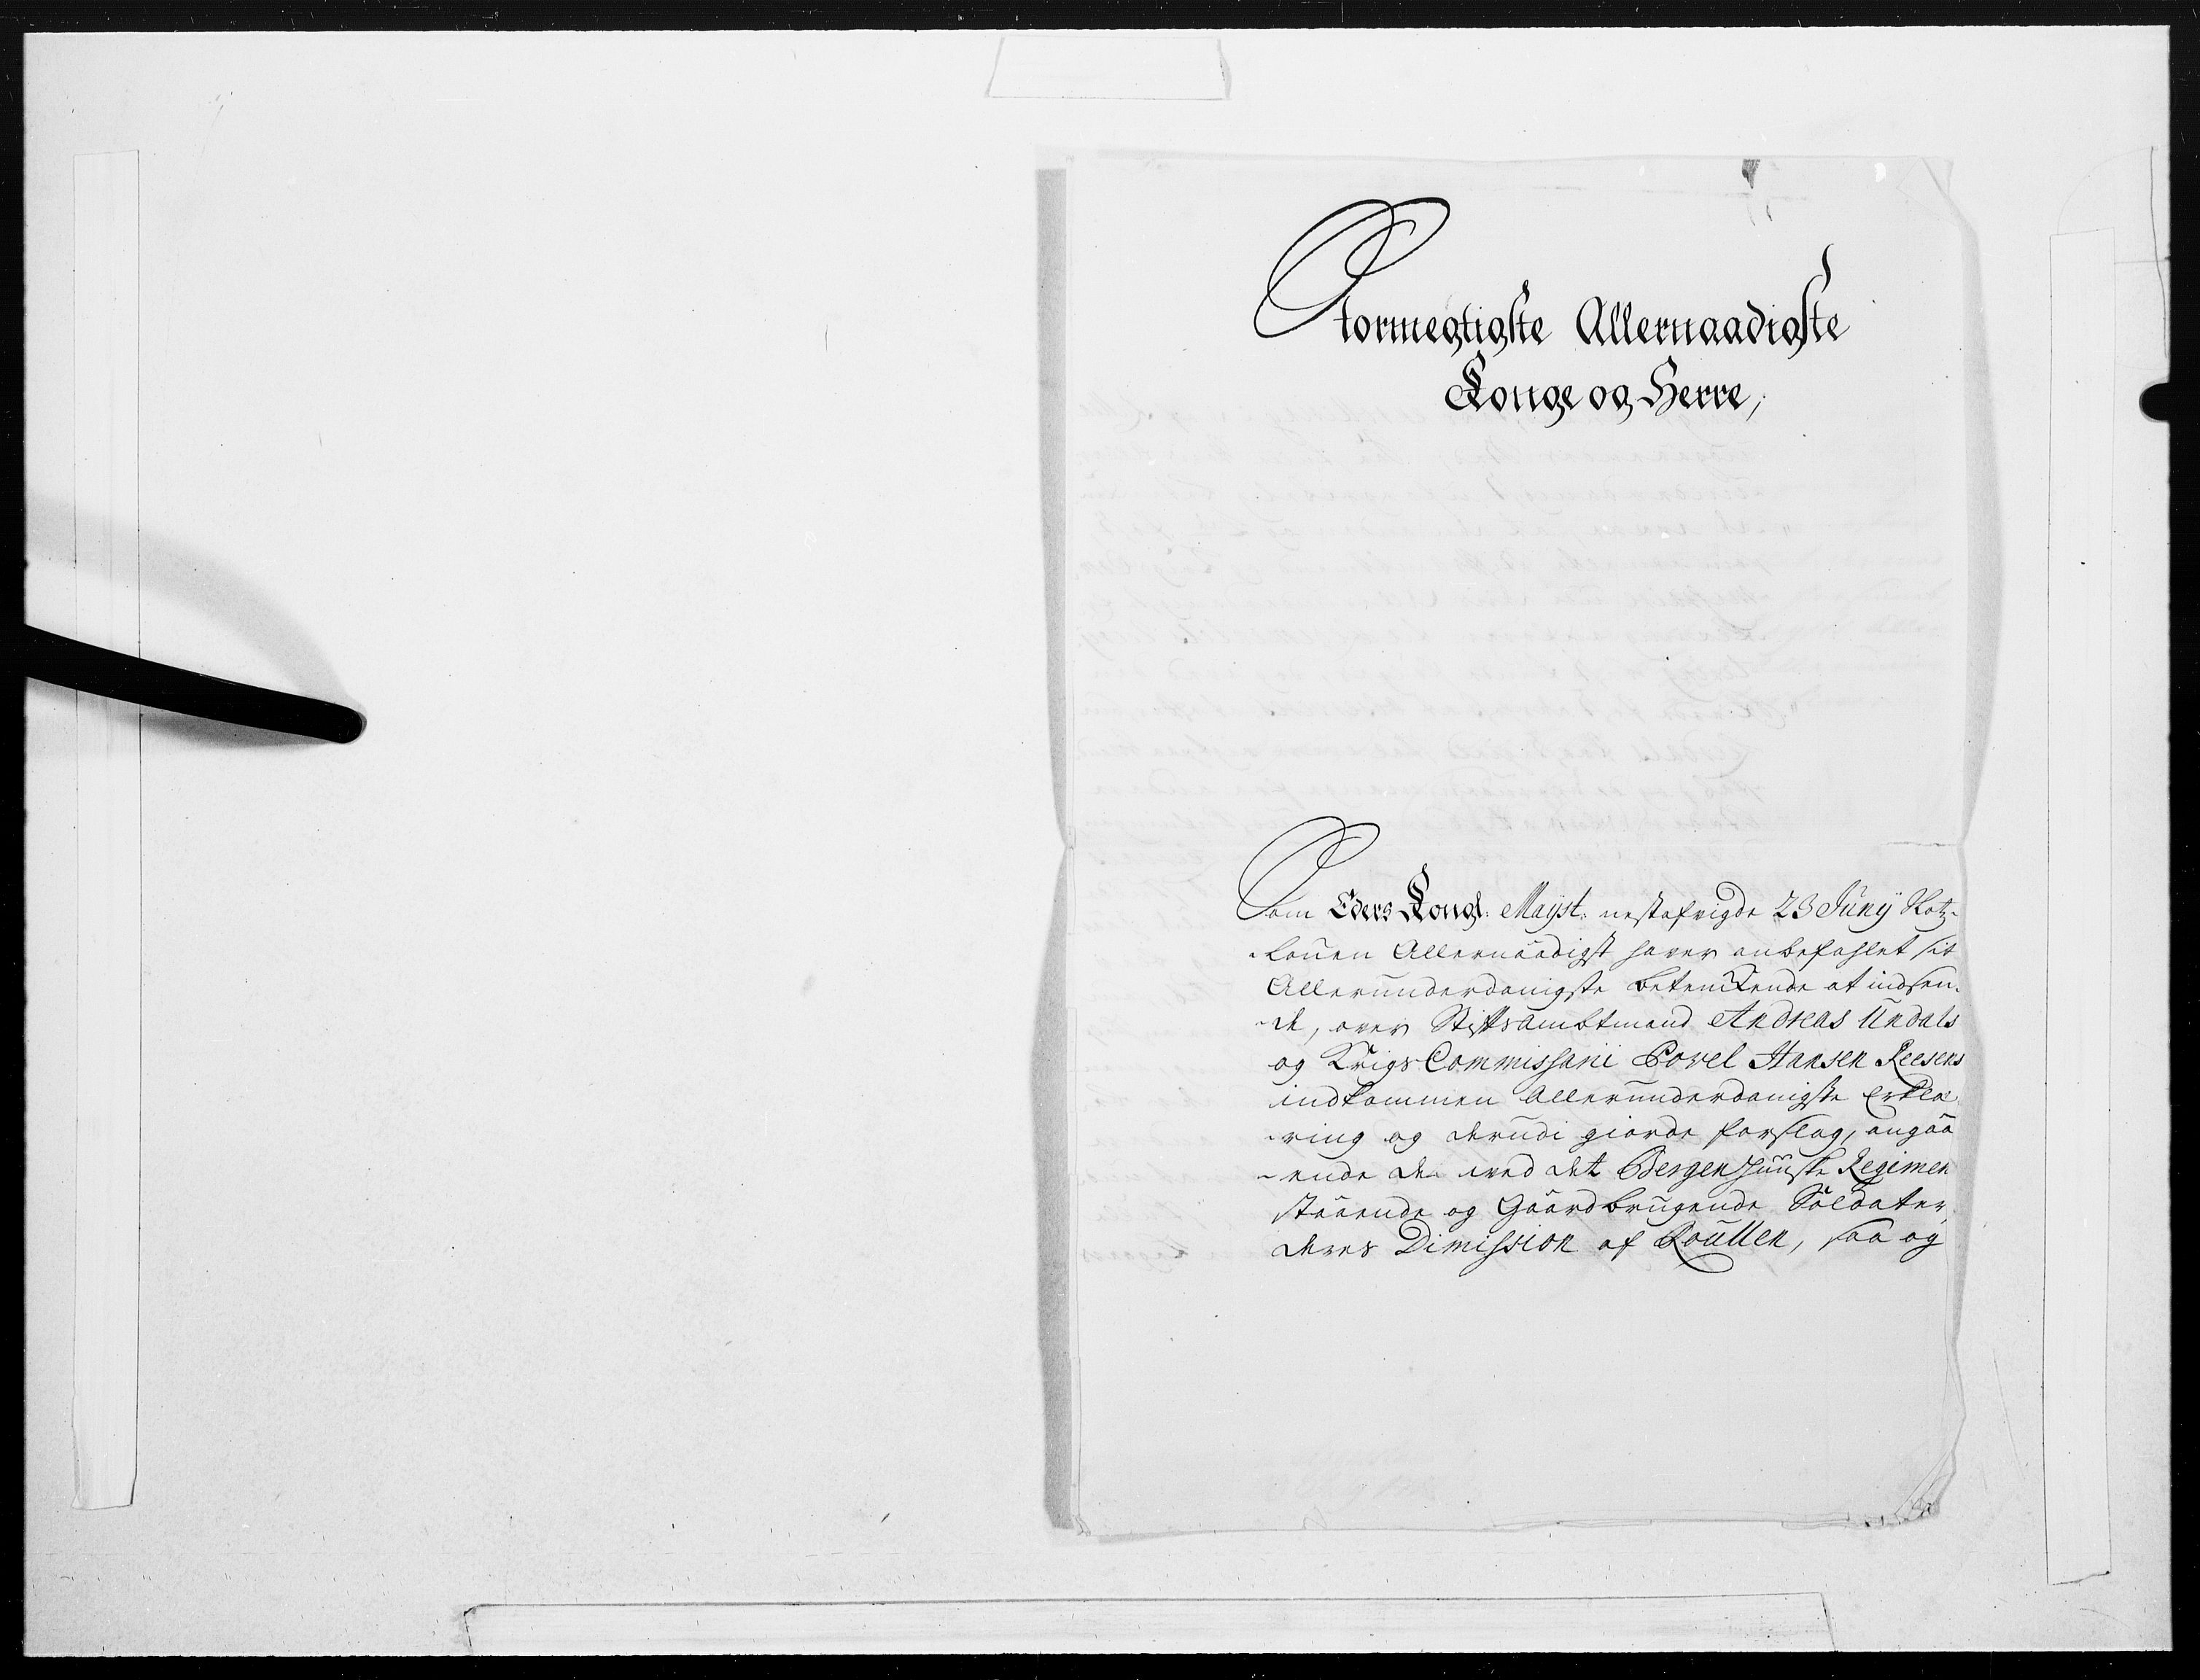 Stormegtigste Allernaadigste
Konge og Herre,
Som Eders Kongl: Mayst: nestafvigde 23 Junÿ
Allernaadigst haver anbefahlet sit
Allerunderdanigste betenckende at indsen-
-de, over Stiftsambtmand Andreas Undals
og Krigs Commissarii Povel Hansen Reesens
indkommen Allerunderdanigste Erklæ-
-ring og derudi giorde forslag, angaa
-ende de ved det Bergenhuuske Regimen
staaende og Gaardbrugende Soldater,
deres Dimission af Roullen, saa og